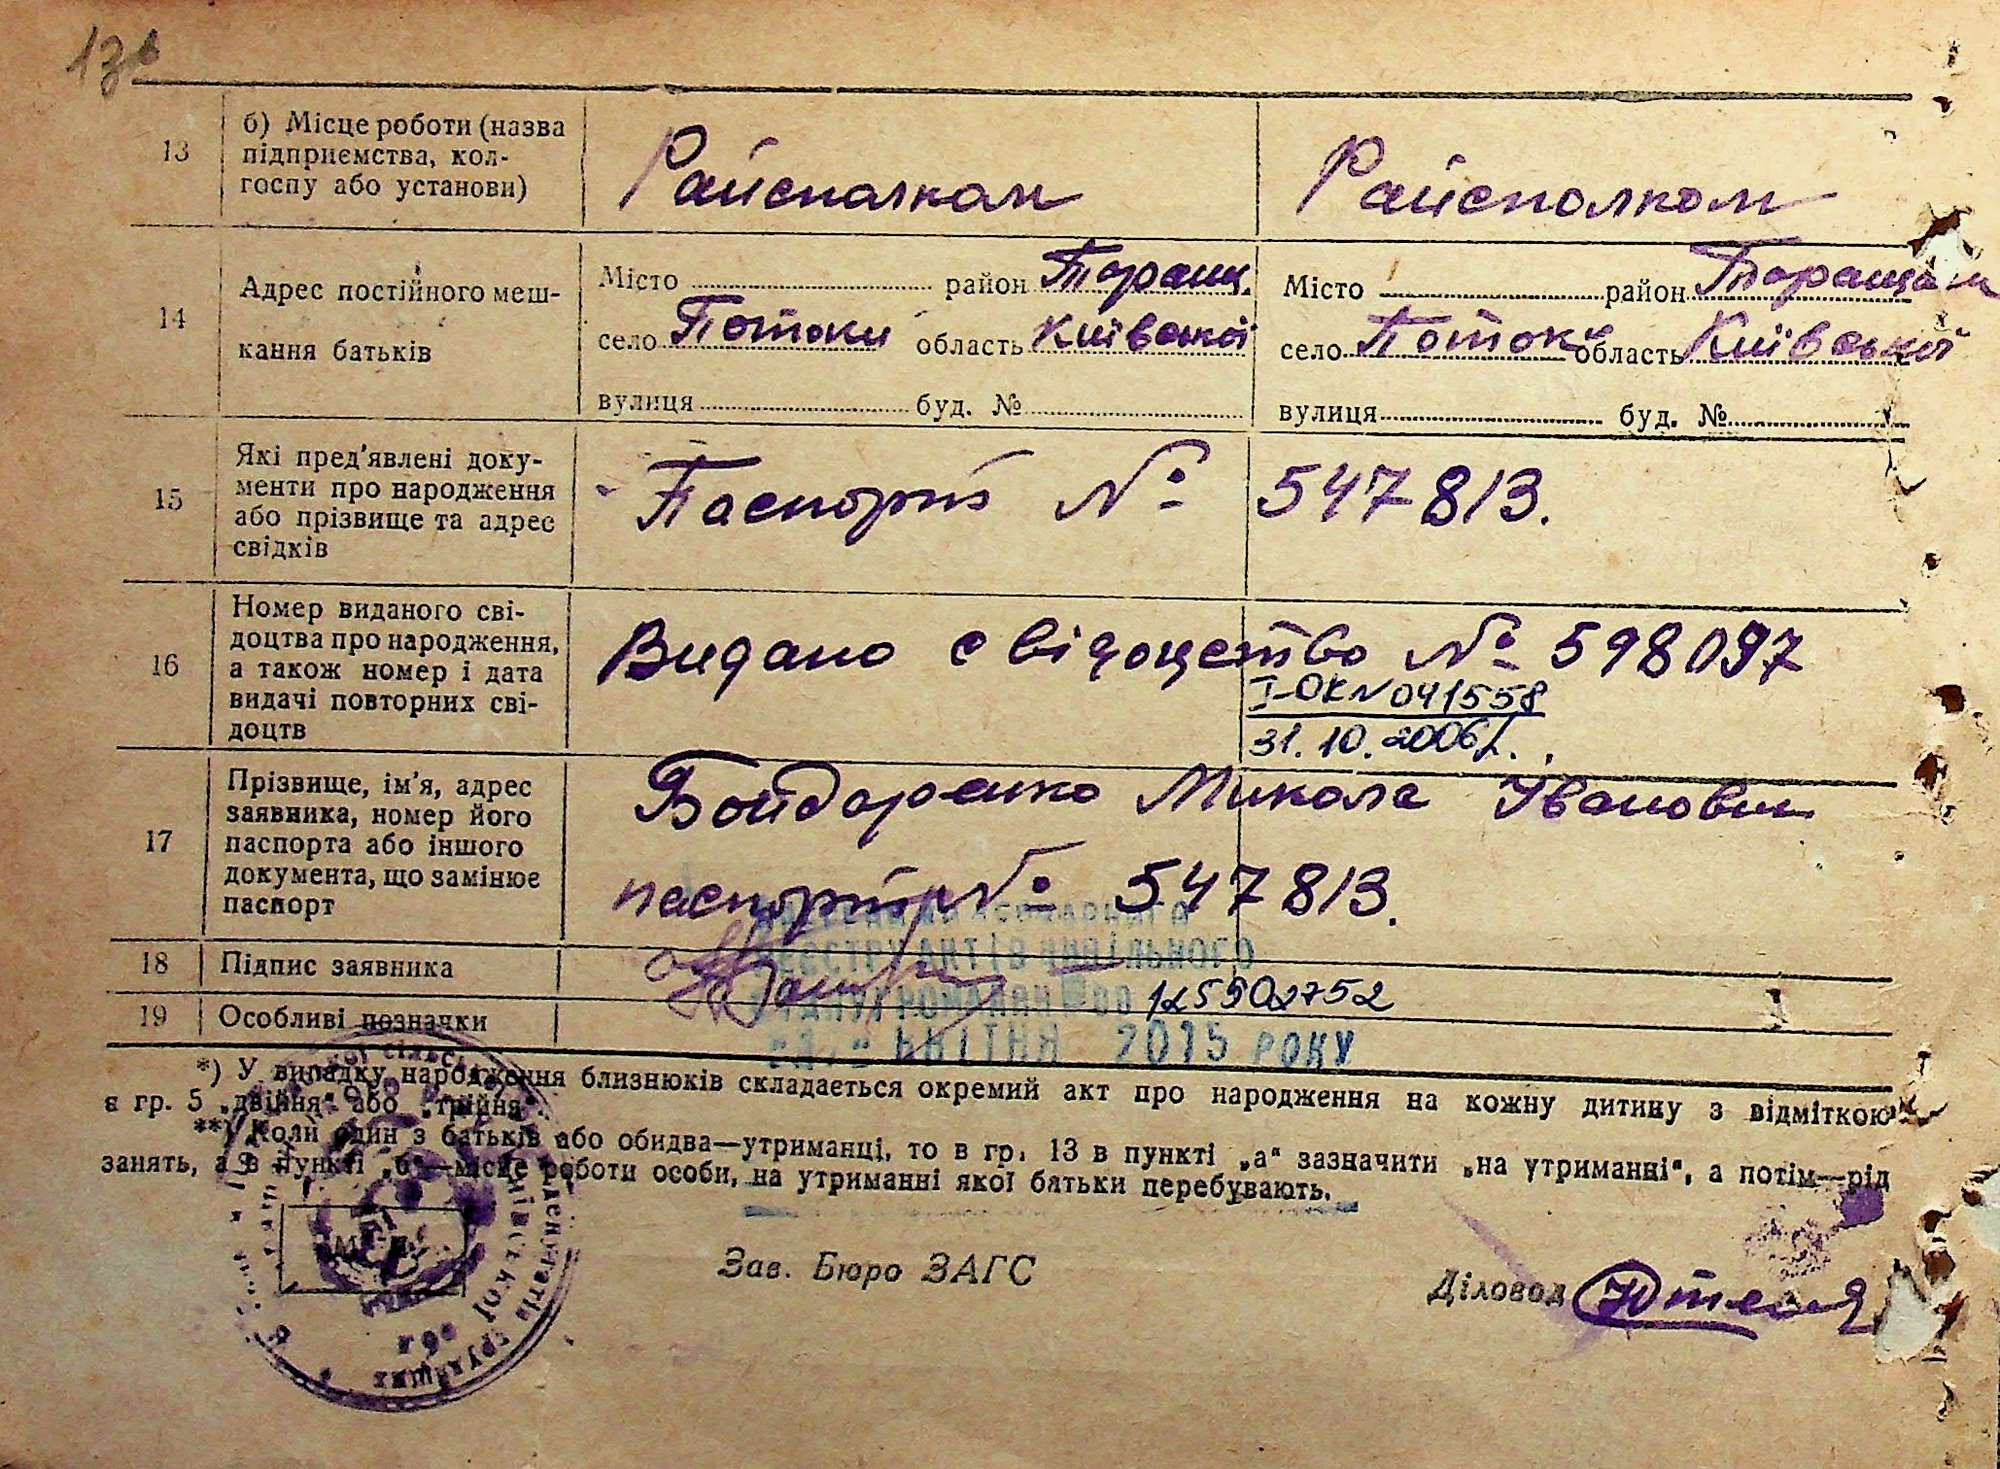 13
б) Місце роботи (назва
підприємства, кол-
госпу або установи)
Райсполком
Райсполком
14
Адрес постійного меш-
кання батьків
Місто район Таращ.
село Потоки область Київської
вулиця буд. №
Місто район Таращан
село Потоки область Київської
вулиця буд. №
15
Які пред'явлені доку-
менти про народження
або прізвище та адрес
свідків
Паспорт № 547813.
16
Номер виданого сві-
доцтва про народження,
а також номер і дата
видачі повторних сві-
доцтв
Видано свідоцтво № 598097
І-ОК № 041558
31.10.2006
17
Прізвище, ім'я, адрес
заявника, номер його
паспорта або іншого
документа, що замінює
паспорт
Бондаренко Микола Іванович
паспорт № 547813.
18
Підпис заявника
реєстру актів цивільного
19
Особливі позначки
125902752
квітня 2015 року
*) У випадку народження близнюків складається окремий акт про народження на кожну дитину з відміткою
в гр. 5 „двійня“ або „трійня“.
**) Коли один з батьків або обидва—утриманці, то в гр. 13 в пункті „а“ зазначити „на утриманні“, а потім—рід
занять, а в пункті „б“—місце роботи особи, на утриманні якої батьки перебувають.
Зав. Бюро ЗАГС
Діловод